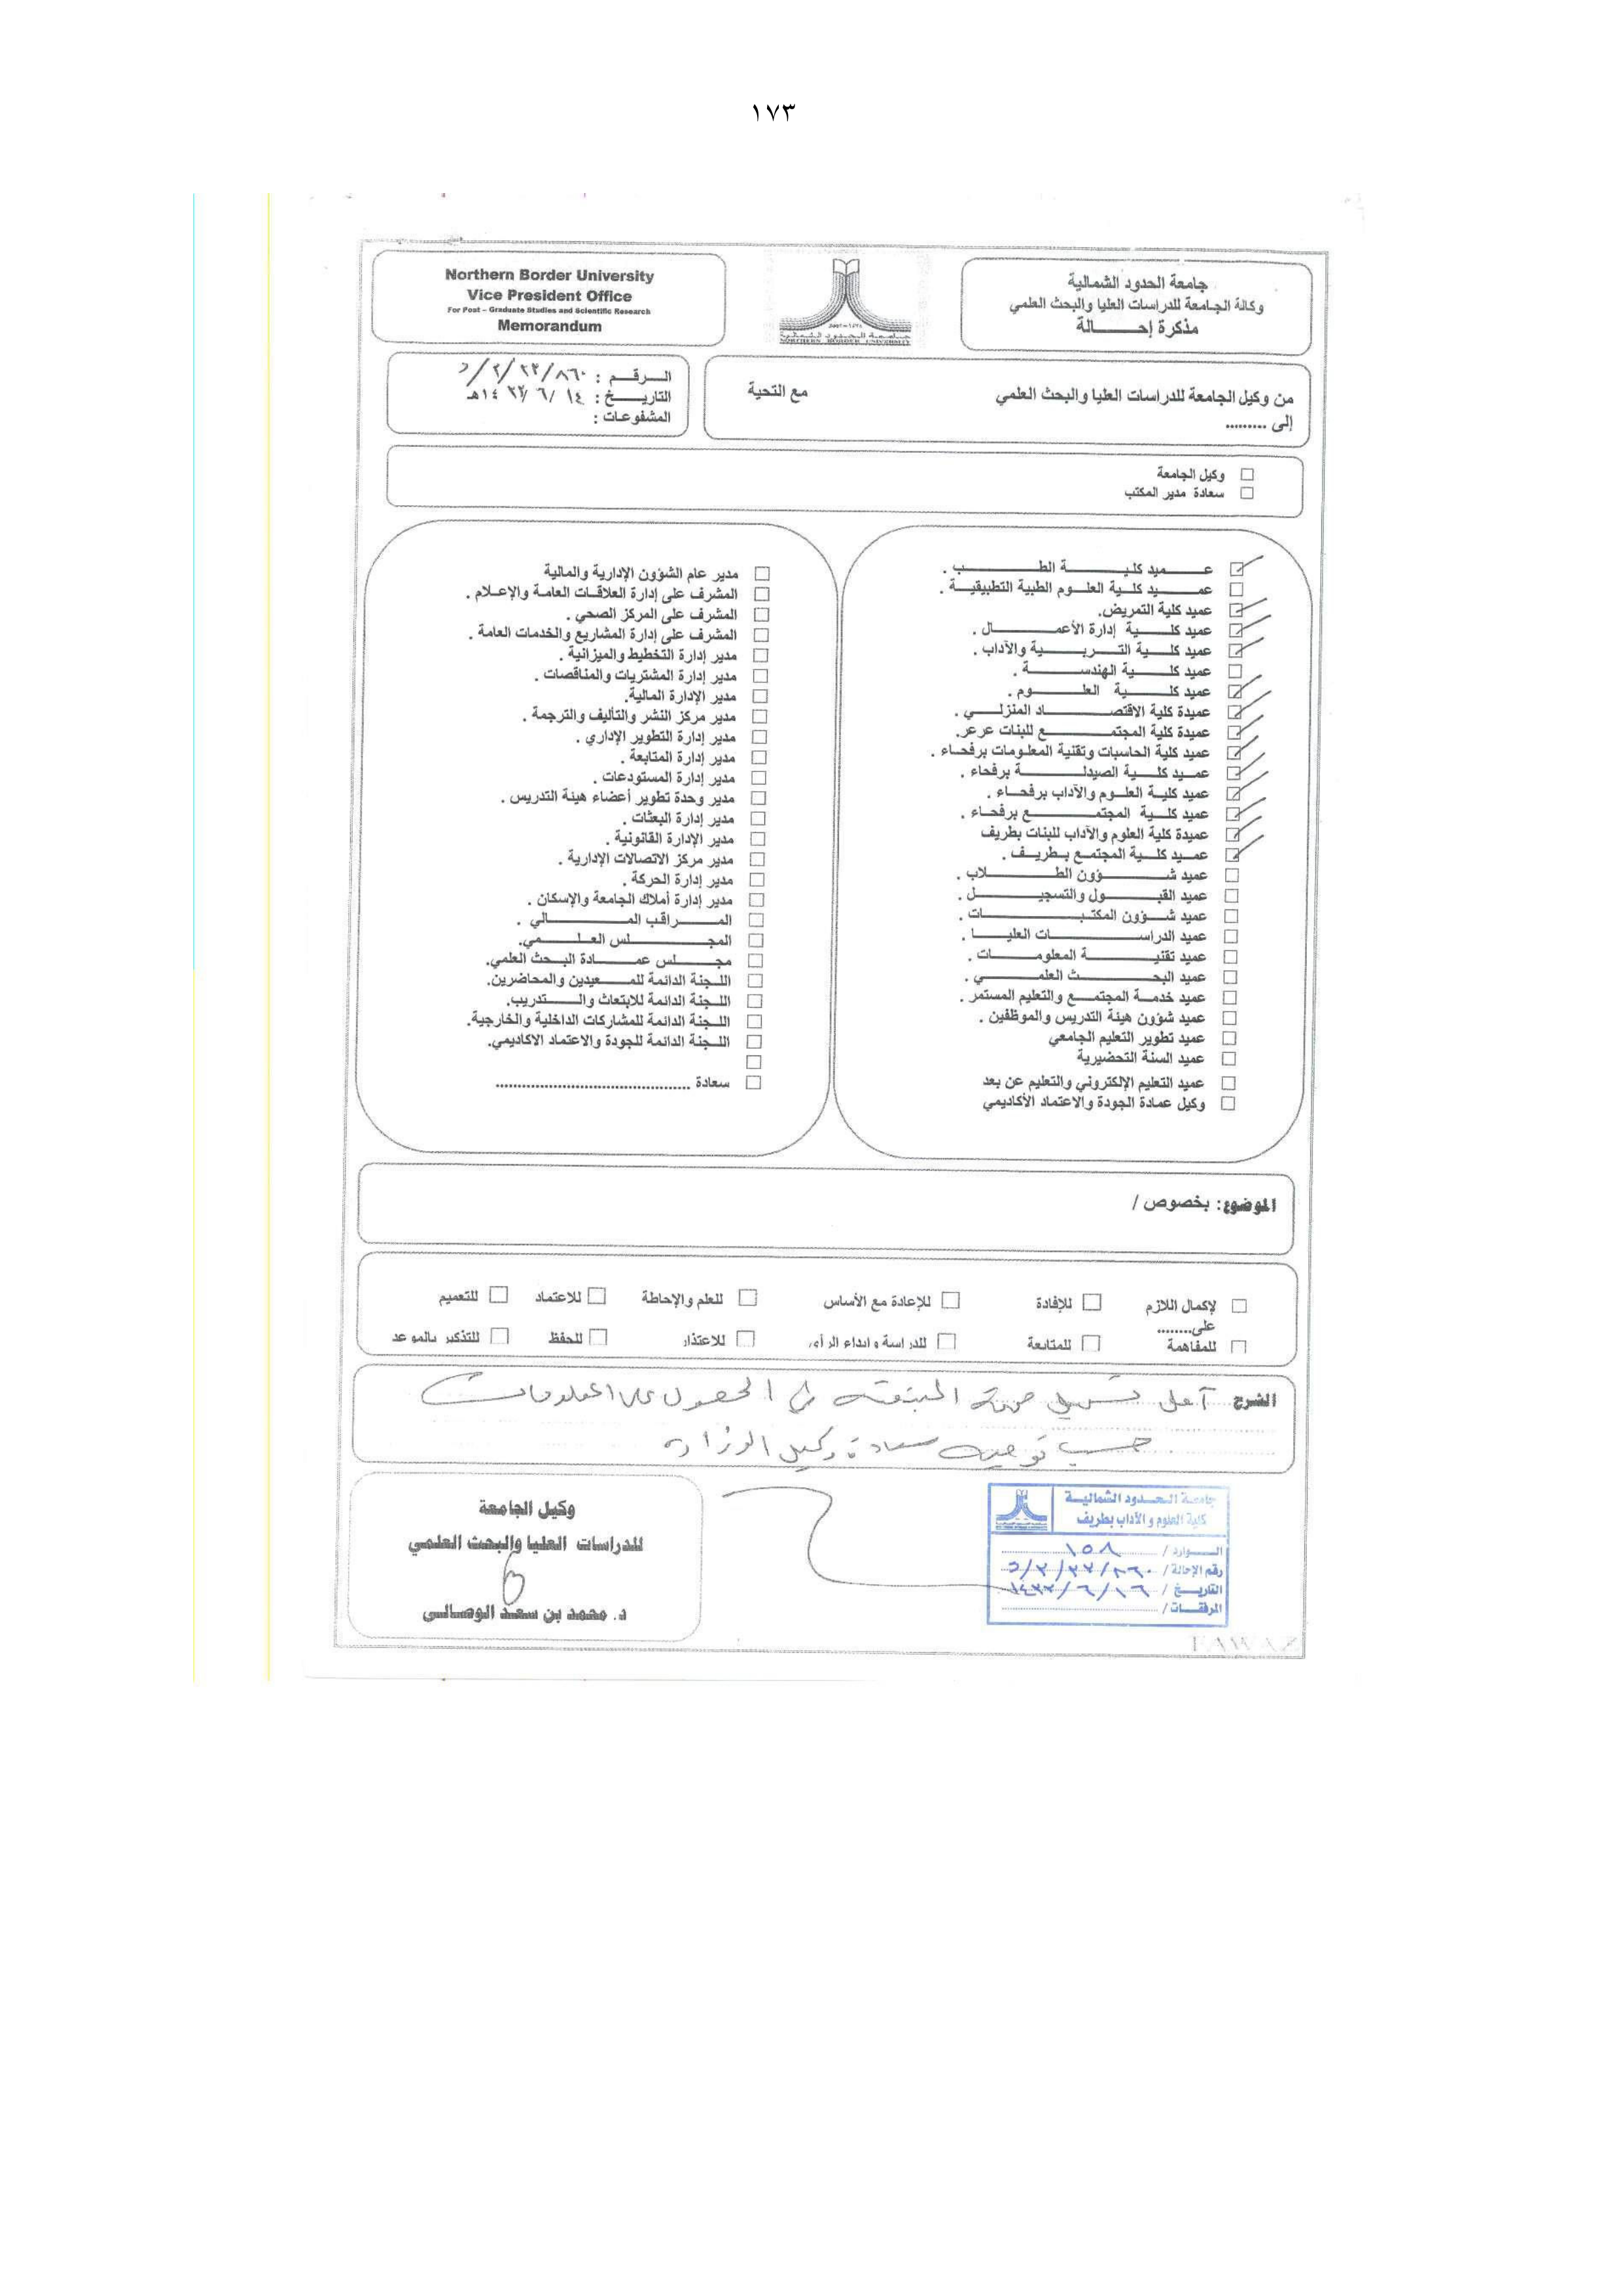 ١٧٣
جامعة الحدود الشمالية
وكالة الجامعة للدراسات العليا والبحث العلمي
مذكرة إحـــــالة
Northern Border University
Vice President Office
For Post – Graduate Studies and Scientific Research
Memorandum
من وكيل الجامعة للدراسات العليا والبحث العلمي
مع التحية
إلى .........
الرقم :
التاريخ : ١٤ /٦
المشفوعات :
وكيل الجامعة
سعادة مدير المكتب
عميد كلية الطب .
عميد كلية العلوم الطبية التطبيقية .
عميد كلية التمريض.
عميد كلية إدارة الأعمال .
عميد كلية التربية والآداب .
عميد كلية الهندسة .
عميد كلية العلوم .
عميدة كلية الاقتصاد المنزلي .
عميدة كلية المجتمع للبنات عرعر.
عميد كلية الحاسبات وتقنية المعلومات برفحاء .
عميد كلية الصيدلة برفحاء .
عميد كلية العلوم والآداب برفحاء .
عميد كلية المجتمع برفحاء .
عميدة كلية العلوم والآداب للبنات بطريف
عميد كلية المجتمع بطريف .
عميد شؤون الطلاب .
عميد القبول والتسجيل .
عميد شؤون المكتبات .
عميد الدراسات العليا .
عميد تقنية المعلومات .
عميد البحث العلمي .
عميد خدمة المجتمع والتعليم المستمر .
عميد شؤون هيئة التدريس والموظفين .
عميد تطوير التعليم الجامعي
عميد السنة التحضيرية
عميد التعليم الإلكتروني والتعليم عن بعد
وكيل عمادة الجودة والاعتماد الأكاديمي
مدير عام الشؤون الإدارية والمالية
المشرف على إدارة العلاقات العامة والإعلام .
المشرف على المركز الصحي .
المشرف على إدارة المشاريع والخدمات العامة .
مدير إدارة التخطيط والميزانية .
مدير إدارة المشتريات والمناقصات .
مدير الإدارة المالية.
مدير مركز النشر والتأليف والترجمة .
مدير إدارة التطوير الإداري .
مدير إدارة المتابعة .
مدير إدارة المستودعات .
مدير وحدة تطوير أعضاء هيئة التدريس .
مدير إدارة البعثات .
مدير الإدارة القانونية .
مدير مركز الاتصالات الإدارية .
مدير إدارة الحركة .
مدير إدارة أملاك الجامعة والإسكان .
المراقب المالي .
المجلس العلمي.
مجلس عمادة البحث العلمي.
اللجنة الدائمة للمعيدين والمحاضرين.
اللجنة الدائمة للابتعاث والتدريب.
اللجنة الدائمة للمشاركات الداخلية والخارجية.
اللجنة الدائمة للجودة والاعتماد الاكاديمي.
سعادة ..........................................
الموضوع: بخصوص /
لإكمال اللازم للإفادة للإعادة مع الأساس للعلم والإحاطة للاعتماد للتعميم
على........
للمفاهمة للمتابعة للدراسة وابداء الرأي للاعتذار للحفظ للتذكير بالموعد
الشرح آمل تسهيل مهمة المبتعثه في الحصول على المعلومات
حسب توجيه سعادة وكيل الوزارة
وكيل الجامعة
للدراسات العليا والبحث العلمي
د. محمد بن سعد الوصالي
جامعة الحدود الشمالية
كلية العلوم و الآداب بطريف
الوارد / ١٥٨
رقم الإحالة /
التاريخ / ١٤٣٢/٦/١٦
المرفقات /
FAWAZ